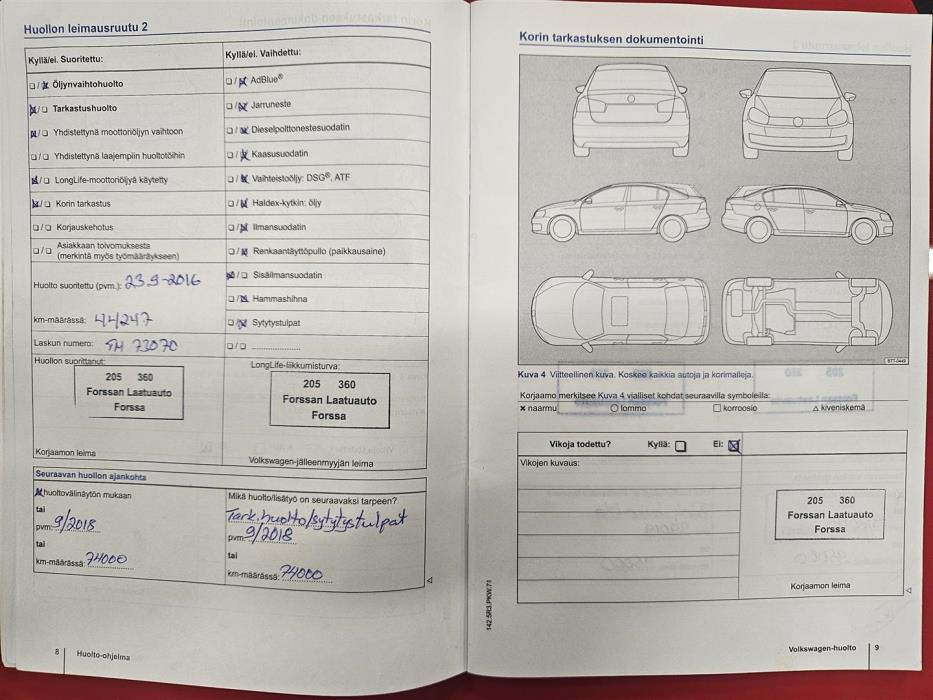 Huollon leimausruutu 2
Kyllä/ei. Suoritettu:
☐/☒ Öljynvaihtohuolto
☒/☐ Tarkastushuolto
☒/☐ Yhdistettynä moottoriöljyn vaihtoon
☐/☐ Yhdistettynä laajempiin huoltotöihin
☒/☐ LongLife-moottoriöljyä käytetty
☒/☐ Korin tarkastus
☐/☐ Korjauskehotus
☐/☐ Asiakkaan toivomuksesta
(merkintä myös työmääräykseen)
Huolto suoritettu (pvm.): 23.9-2016
km-määrässä: 44247
Laskun numero: TH 73070
Huollon suorittanut:
205 360
Forssan Laatuauto
Forssa
Korjaamon leima
Kyllä/ei. Vaihdettu:
☐/☒ AdBlue®
☐/☒ Jarruneste
☐/☒ Dieselpolttonestesuodatin
☐/☒ Kaasusuodatin
☐/☒ Vaihteistoöljy: DSG®, ATF
☐/☒ Haldex-kytkin: öljy
☐/☒ Ilmansuodatin
☐/☒ Renkaantäyttöpullo (paikkausaine)
☒/☐ Sisäilmansuodatin
☐/☒ Hammashihna
☐/☒ Sytytystulpat
☐/☐ ....................
LongLife-liikkumisturva:
205 360
Forssan Laatuauto
Forssa
Volkswagen-jälleenmyyjän leima
Seuraavan huollon ajankohta
☒ huoltovälinäytön mukaan
tai
pvm: 9/2018
tai
km-määrässä: 74000
Mikä huolto/lisätyö on seuraavaksi tarpeen?
Tark.huolto/sytytystulpat
pvm: 9/2018
tai
km-määrässä: 74000
8 | Huolto-ohjelma
Korin tarkastuksen dokumentointi
B7T-0449
Kuva 4 Viitteellinen kuva. Koskee kaikkia autoja ja korimalleja.
Korjaamo merkitsee Kuva 4 vialliset kohdat seuraavilla symboleilla:
× naarmu ○ lommo □ korroosio △ kiveniskemä
Vikoja todettu? Kyllä: ☐ Ei: ☒
Vikojen kuvaus:
205 360
Forssan Laatuauto
Forssa
Korjaamon leima
142.5R3.PKW.71
Volkswagen-huolto | 9